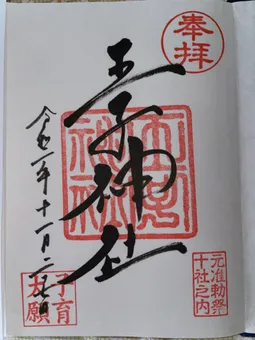 奉拝
王子神社
王子神社
元准勅祭
十社之内
令和 年十一月二 日
子育
大願